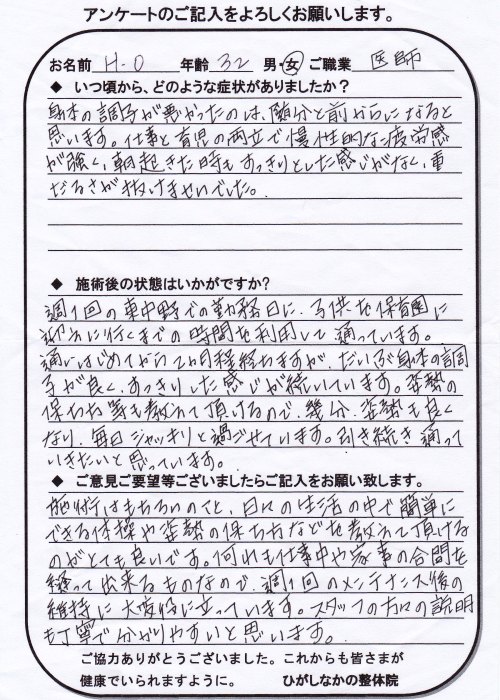 アンケートのご記入をよろしくお願いします。
お名前 H.O 年齢 32 男・女 ご職業 医師
◆ いつ頃から、どのような症状がありましたか？
身体の調子が悪かったのは、随分と前からになると
思います。仕事と育児の両立で慢性的な疲労感
が強く、朝起きた時もすっきりとした感じがなく、重
だるさが抜けませんでした。
◆ 施術後の状態はいかがですか？
週1回の東中野での勤務日に、子供を保育園に
迎えに行くまでの時間を利用して通っています。
通いはじめてから2ヵ月程経ちますが、だいぶ身体の調
子が良く、すっきりした感じが続いています。姿勢の
保ち方等も教えて頂けるので、幾分、姿勢も良く
なり、毎日シャッキリと過ごせています。引き続き通って
いきたいと思っています。
◆ ご意見ご要望等ございましたらご記入をお願い致します。
施術はもちろんのこと、日々の生活の中で簡単に
できる体操や姿勢の保ち方などを教えて頂ける
のがとても良いです。何れも仕事中や家事の合間を
縫って出来るものなので、週1回のメンテナンス後の
維持に大変役に立っています。スタッフの方々の説明
も丁寧で分かりやすいと思います。
ご協力ありがとうございました。これからも皆さまが
健康でいられますように。 ひがしなかの整体院